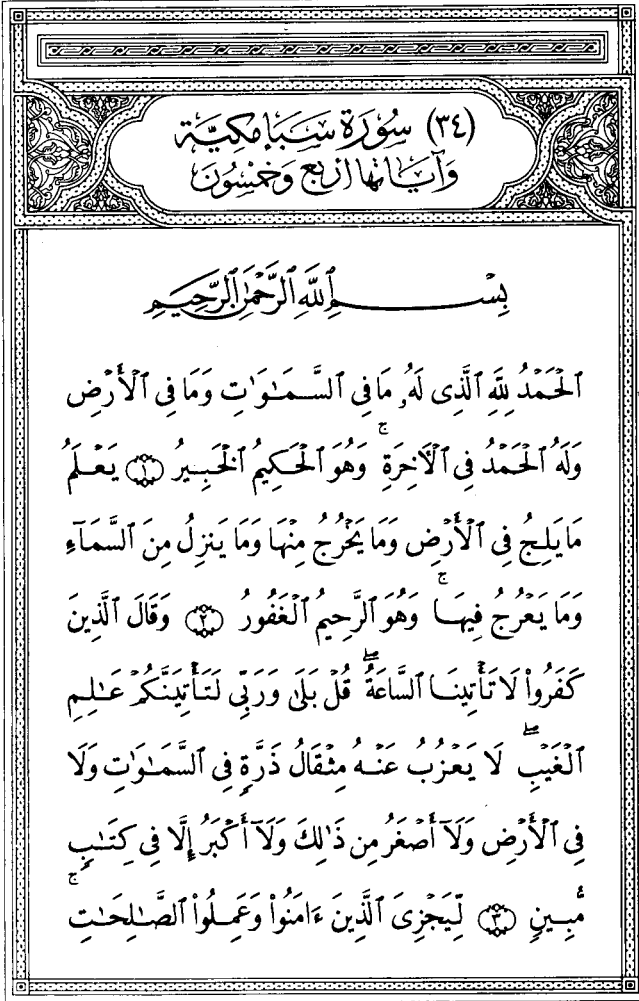 (٣٤) سُورَة سَبَإٍ مَكِيَّة
وَآيَاتهَا أرْبَع وَخَمْسُونَ
بِسْمِ ٱللَّهِ ٱلرَّحْمَٰنِ ٱلرَّحِيمِ
ٱلْحَمْدُ لِلَّهِ ٱلَّذِى لَهُۥ مَا فِى ٱلسَّمَٰوَٰتِ وَمَا فِى ٱلْأَرْضِ
وَلَهُ ٱلْحَمْدُ فِى ٱلْأَخِرَةِ ۚ وَهُوَ ٱلْحَكِيمُ ٱلْخَبِيرُ ﴿١﴾ يَعْلَمُ
مَا يَلِجُ فِى ٱلْأَرْضِ وَمَا يَخْرُجُ مِنْهَا وَمَا يَنزِلُ مِنَ ٱلسَّمَآءِ
وَمَا يَعْرُجُ فِيهَا ۚ وَهُوَ ٱلرَّحِيمُ ٱلْغَفُورُ ﴿٢﴾ وَقَالَ ٱلَّذِينَ
كَفَرُواْ لَا تَأْتِينَا ٱلسَّاعَةُ ۖ قُلْ بَلَىٰ وَرَبِّى لَتَأْتِيَنَّكُمْ عَٰلِمِ
ٱلْغَيْبِ ۖ لَا يَعْزُبُ عَنْهُ مِثْقَالُ ذَرَّةٍ فِى ٱلسَّمَٰوَٰتِ وَلَا
فِى ٱلْأَرْضِ وَلَآ أَصْغَرُ مِن ذَٰلِكَ وَلَآ أَكْبَرُ إِلَّا فِى كِتَٰبٍ
مُّبِينٍ ﴿٣﴾ لِّيَجْزِىَ ٱلَّذِينَ ءَامَنُواْ وَعَمِلُواْ ٱلصَّٰلِحَٰتِ ۚ